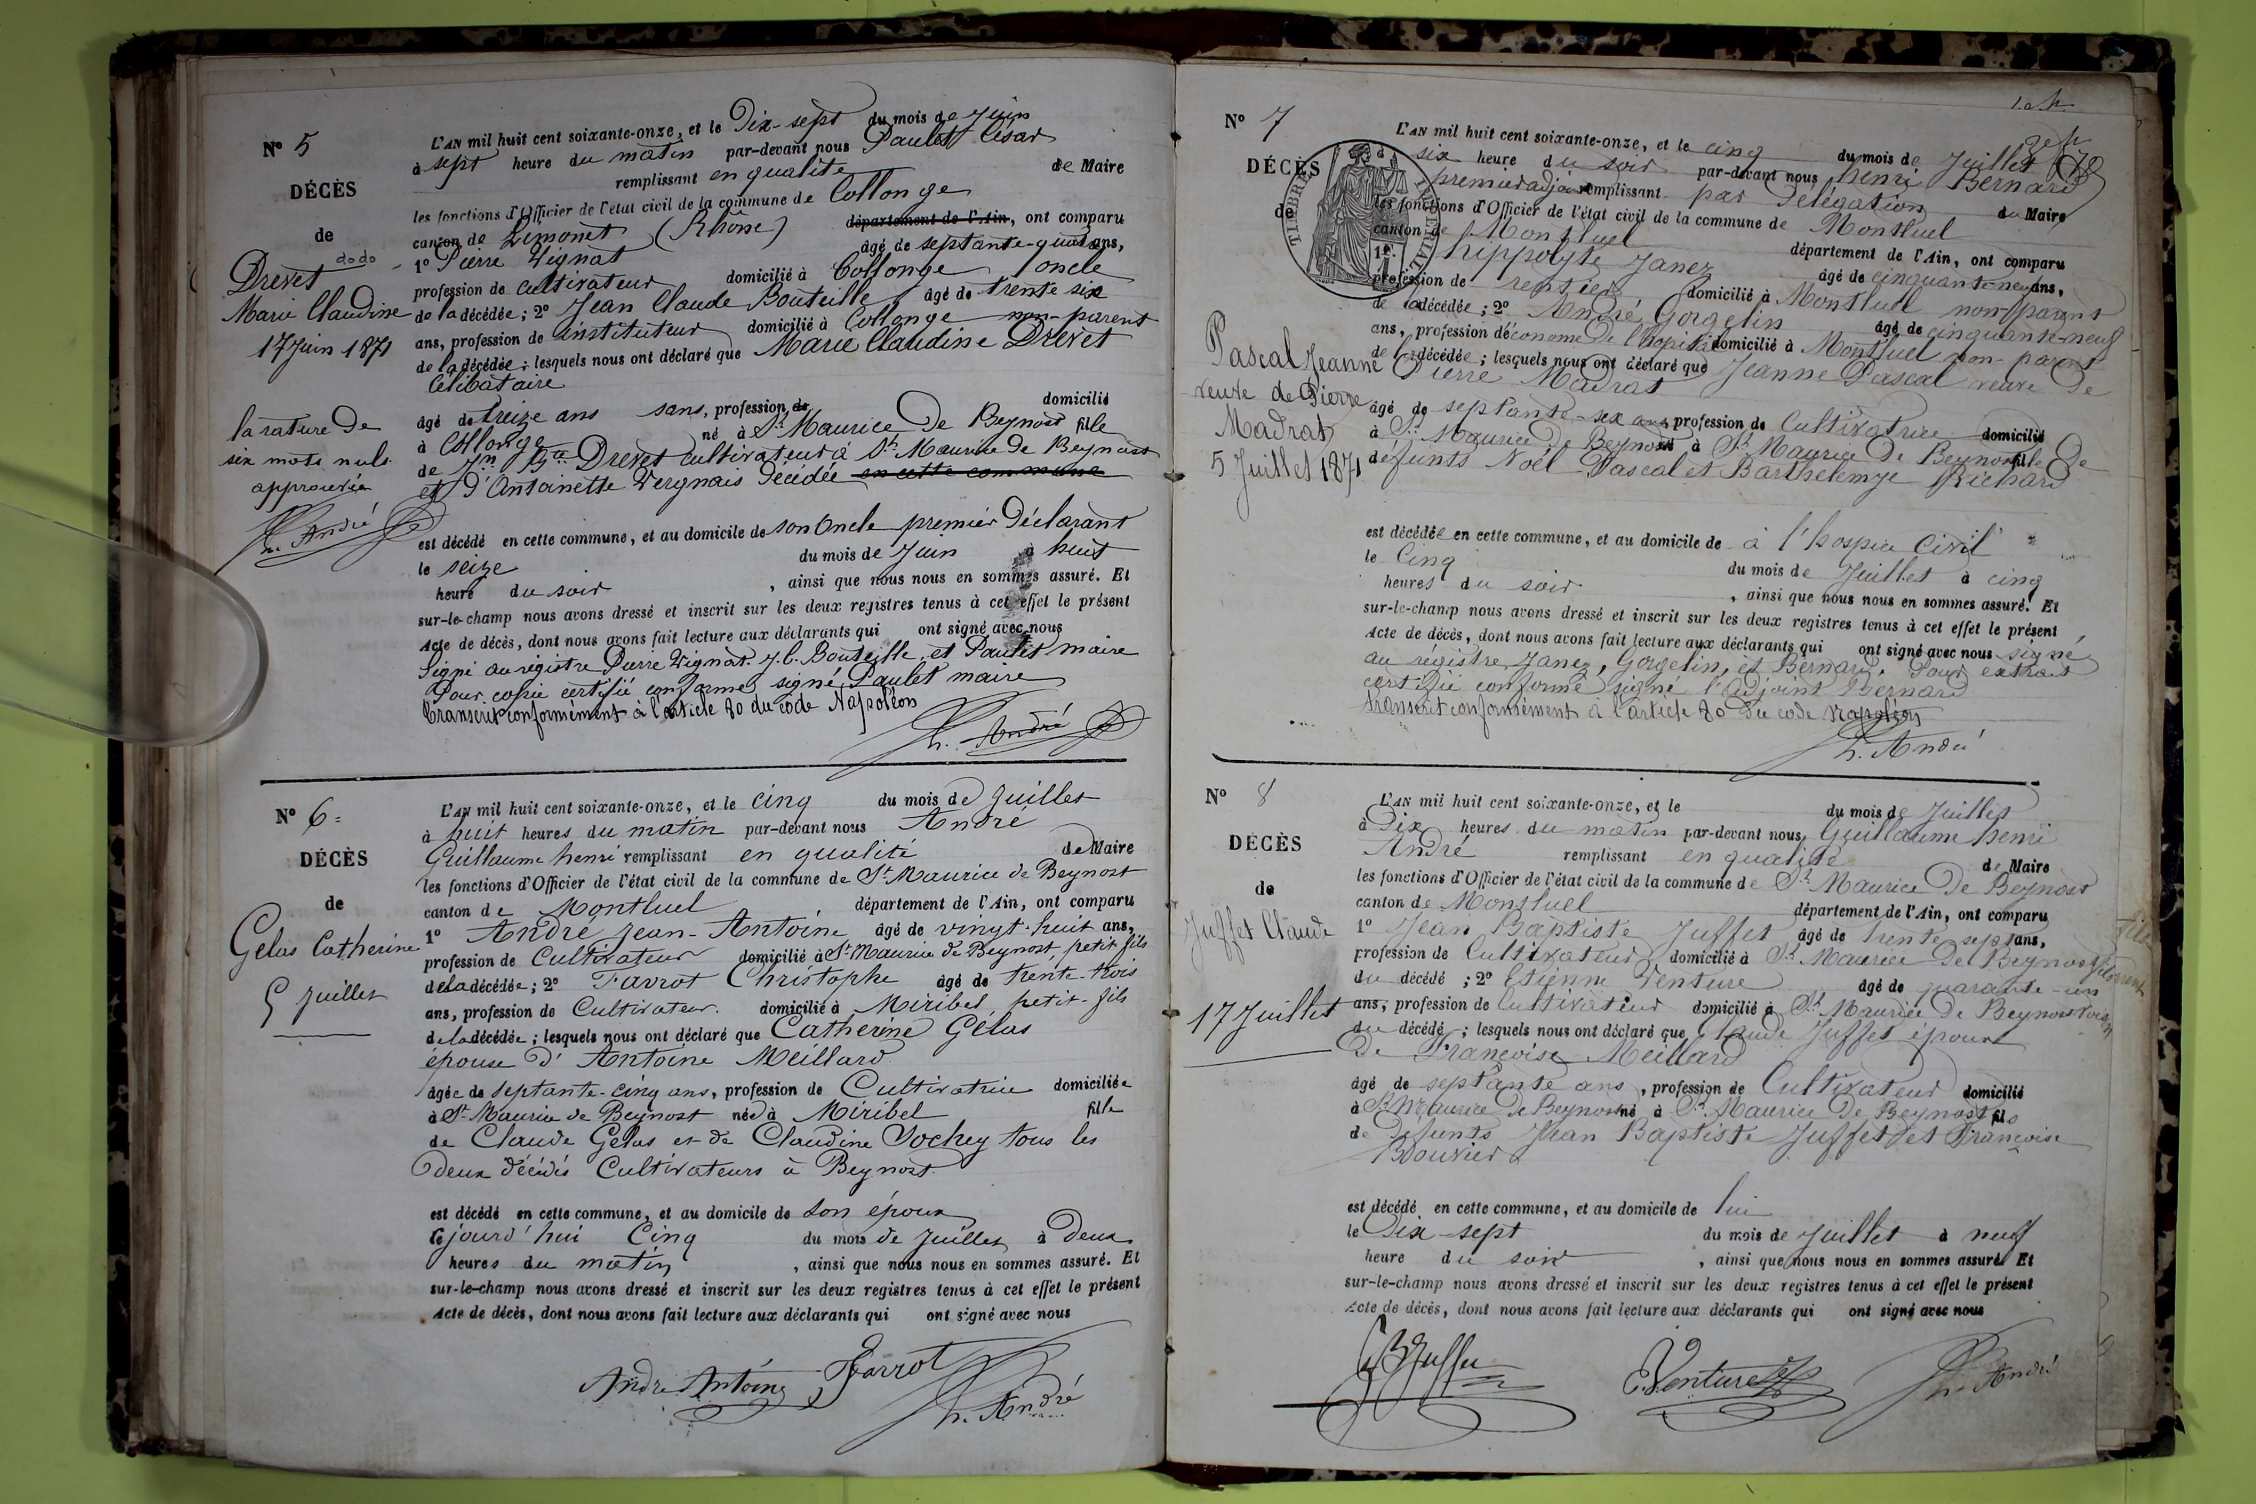 N° 5
DÉCÈS
de
Drevet
Marie Claudine
17 Juin 1871
la rature de
six mots nuls
approuvée
h. André
L'AN mil huit cent soixante-onze, et le Dix-sept du mois de Juin
à sept heure du matin par-devant nous Paulet César
remplissant en qualité de Maire
les fonctions d'Officier de l'état civil de la commune de Collonge
canton de Limonet (Rhône) département de l'Ain, ont comparu
1° Pierre Vignat âgé de septante-quatre ans,
profession de cultivateur domicilié à Collonge oncle
de la décédée; 2° Jean Claude Bouteille âgé de trente six
ans, profession de instituteur domicilié à Collonge non-parent
de la décédée; lesquels nous ont déclaré que Marie Claudine Drevet
Célibataire
âgé de treize ans sans, profession de domicilié
à Collonge né à St Maurice de Beynost fille
de Jn Bte Drevet cultivateur à St Maurice de Beynost
et d'Antoinette Vergnais décédée en cette commune
est décédé en cette commune, et au domicile de son Oncle premier Déclarant
le seize du mois de Juin à huit
heure du soir, ainsi que nous nous en sommes assuré. Et
sur-le-champ nous avons dressé et inscrit sur les deux registres tenus à cet effet le présent
Acte de décès, dont nous avons fait lecture aux déclarants qui ont signé avec nous
Signé au régistre Pierre Vignat. J.C. Bouteille, et Paulet maire
Pour copie certifié conforme signé Paulet maire
Transcrit conformément à l'article 80 du code Napoléon
h. André
N° 6
DÉCÈS
de
Gelas Catherine
5 Juillet
L'AN mil huit cent soixante-onze, et le cinq du mois de Juillet
à huit heures du matin par-devant nous André
Guillaume henri remplissant en qualité de Maire
les fonctions d'Officier de l'état civil de la commune de St Maurice de Beynost
canton de Montluel département de l'Ain, ont comparu
1° André Jean-Antoine âgé de vingt-huit ans,
profession de Cultivateur domicilié à St Maurice de Beynost, petit fils
de la décédée; 2° Favrot Christophe âgé de trente-trois
ans, profession de Cultivateur. domicilié à Miribel petit-fils
de la décédée; lesquels nous ont déclaré que Catherine Gélas
épouse d'Antoine Meillard
âgée de septante-cinq ans, profession de Cultivatrice domiciliée
à St Maurice de Beynost née à Miribel fille
de Claude Gelas et de Claudine Jochey tous les
deux décédés Cultivateurs à Beynost
est décédé en cette commune, et au domicile de son époux
le jourd'hui Cinq du mois de Juillet à Deux
heures du matin, ainsi que nous nous en sommes assuré. Et
sur-le-champ nous avons dressé et inscrit sur les deux registres tenus à cet effet le présent
Acte de décès, dont nous avons fait lecture aux déclarants qui ont signé avec nous
André Antoine Favrot
h. André
N° 7
DÉCÈS
de
Pascal Jeanne
veuve de Pierre
Madrat
5 Juillet 1871
L'AN mil huit cent soixante-onze, et le cinq du mois de Juillet
six heure du soir par-devant nous henri Bernard
premier adjoint remplissant par Délégation du Maire
les fonctions d'Officier de l'état civil de la commune de Montluel
canton de Montluel département de l'Ain, ont comparu
1° hippolyte Janez âgé de cinquante neuf ans,
profession de rentier domicilié à Montluel non parent
de la décédée; 2° André Gorgelin âgé de cinquante-neuf
ans, profession d'économe de l'hopital domicilié à Montluel non-parent
de la décédée; lesquels nous ont déclaré que Jeanne Pascal veuve de
Pierre Madrat
âgé de septante-six ans, profession de Cultivatrice domicilié
à St Maurice de Beynost né à St Maurice de Beynost fille de
défunts Noël Pascal et Barthelemye Richard
est décédée en cette commune, et au domicile de à l'hospice Civil
le Cinq du mois de Juillet à cinq
heures du soir, ainsi que nous nous en sommes assuré. Et
sur-le-champ nous avons dressé et inscrit sur les deux registres tenus à cet effet le présent
Acte de décès, dont nous avons fait lecture aux déclarants qui ont signé avec nous signé
au régistre, Janez, Gorgelin, et Bernard. Pour extrait
certifié conforme signé l'adjoint Bernard
transcrit conformément à l'article 80 du code Napoléon
h. André
N° 8
DÉCÈS
de
Juffet Claude
17 Juillet
L'AN mil huit cent soixante-onze, et le du mois de Juillet
à Dix heures du matin par-devant nous, Guillaume henri
André remplissant en qualité de Maire
les fonctions d'Officier de l'état civil de la commune de St Maurice de Beynost
canton de Montluel département de l'Ain, ont comparu
1° Jean Baptiste Juffet âgé de trente sept ans,
profession de Cultivateur domicilié à St Maurice de Beynost
du décédé; 2° Etienne Venture âgé de quarante-un
ans, profession de Cultivateur domicilié à St Maurice de Beynost voisin
du décédé; lesquels nous ont déclaré que Claude Juffet époux
de Françoise Meillard
âgé de septante ans, profession de Cultivateur domicilié
à St Maurice de Beynost né à St Maurice de Beynost fils
de défunts Jean Baptiste Juffet et Françoise
Bouvier
est décédé en cette commune, et au domicile de lui
le Dix-sept du mois de Juillet à neuf
heure du soir, ainsi que nous nous en sommes assuré. Et
sur-le-champ nous avons dressé et inscrit sur les deux registres tenus à cet effet le présent
Acte de décès, dont nous avons fait lecture aux déclarants qui ont signé avec nous
JB Juffet E. Venture h. André